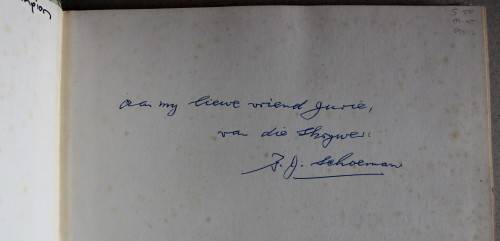 Aan my liewe vriend Jurie,
van die Skrywer:
P. J. Schoeman